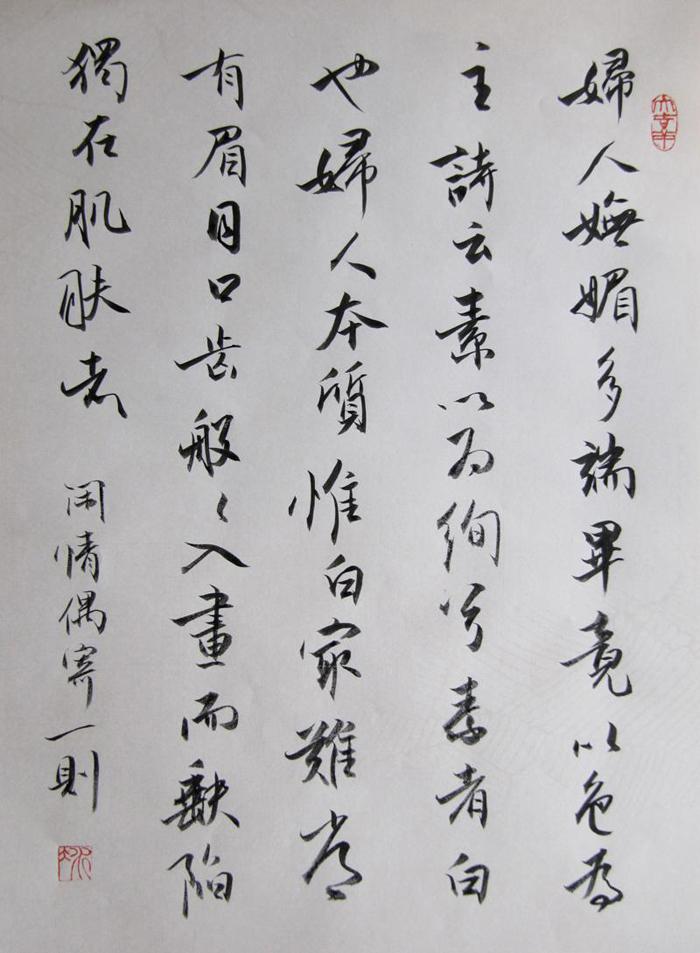 婦人嫵媚多端畢竟以色為
主詩云素以为絢兮素者白
也婦人本質惟白最難常
有眉目口齿般々入畫而缺陷
獨在肌肤者
闲情偶寄一則